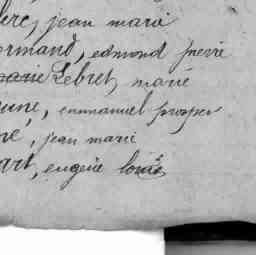 jean marie
ormand, edmond pierre
Lebret, marie
une, emmanuel prosper
re, jean marie
art, eugène louis